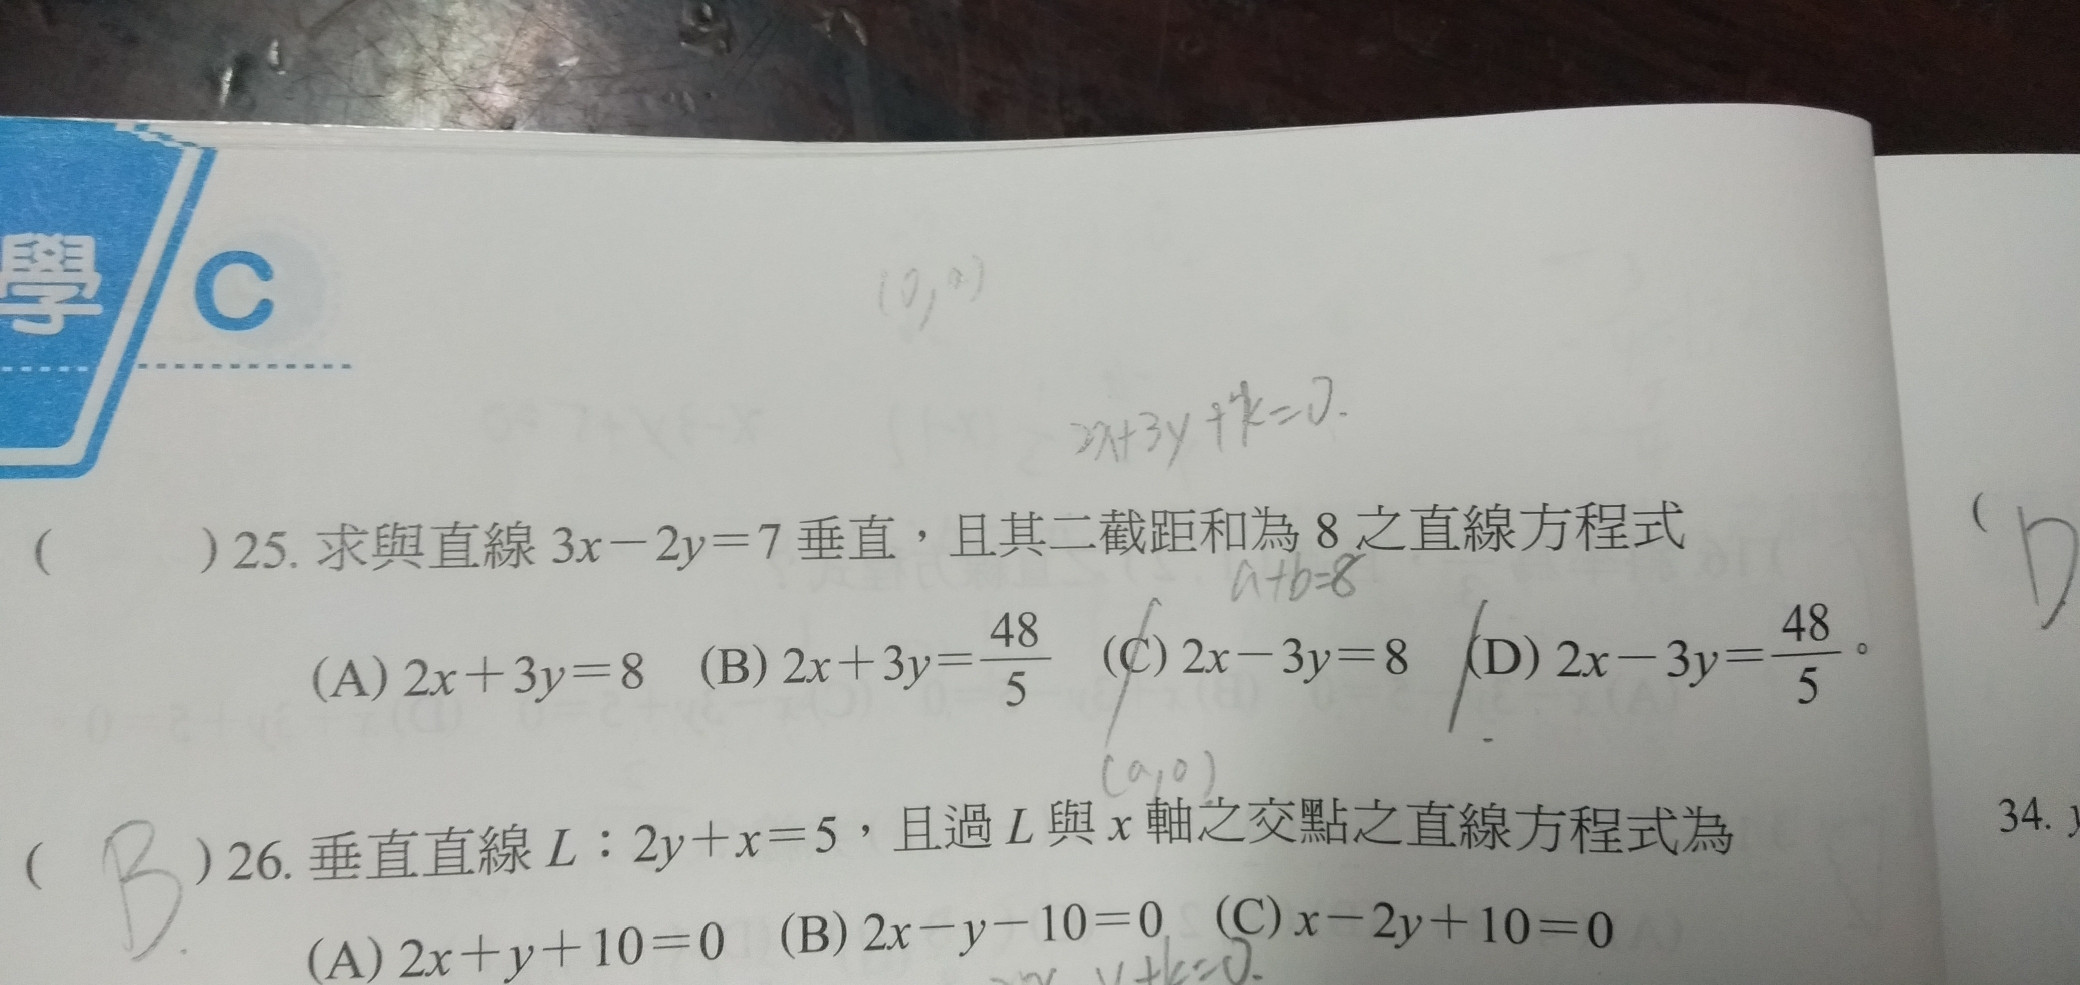 學 C
(0,a)
2x+3y+k=0.
( ) 25. 求與直線 3x-2y=7 垂直，且其二截距和為 8 之直線方程式
a+b=8
(A) 2x+3y=8 (B) 2x+3y=48/5 (C) 2x-3y=8 (D) 2x-3y=48/5。
(a,0)
( B. ) 26. 垂直直線 L：2y+x=5，且過 L 與 x 軸之交點之直線方程式為
(A) 2x+y+10=0 (B) 2x-y-10=0 (C) x-2y+10=0
y+k=0.
( D
34.